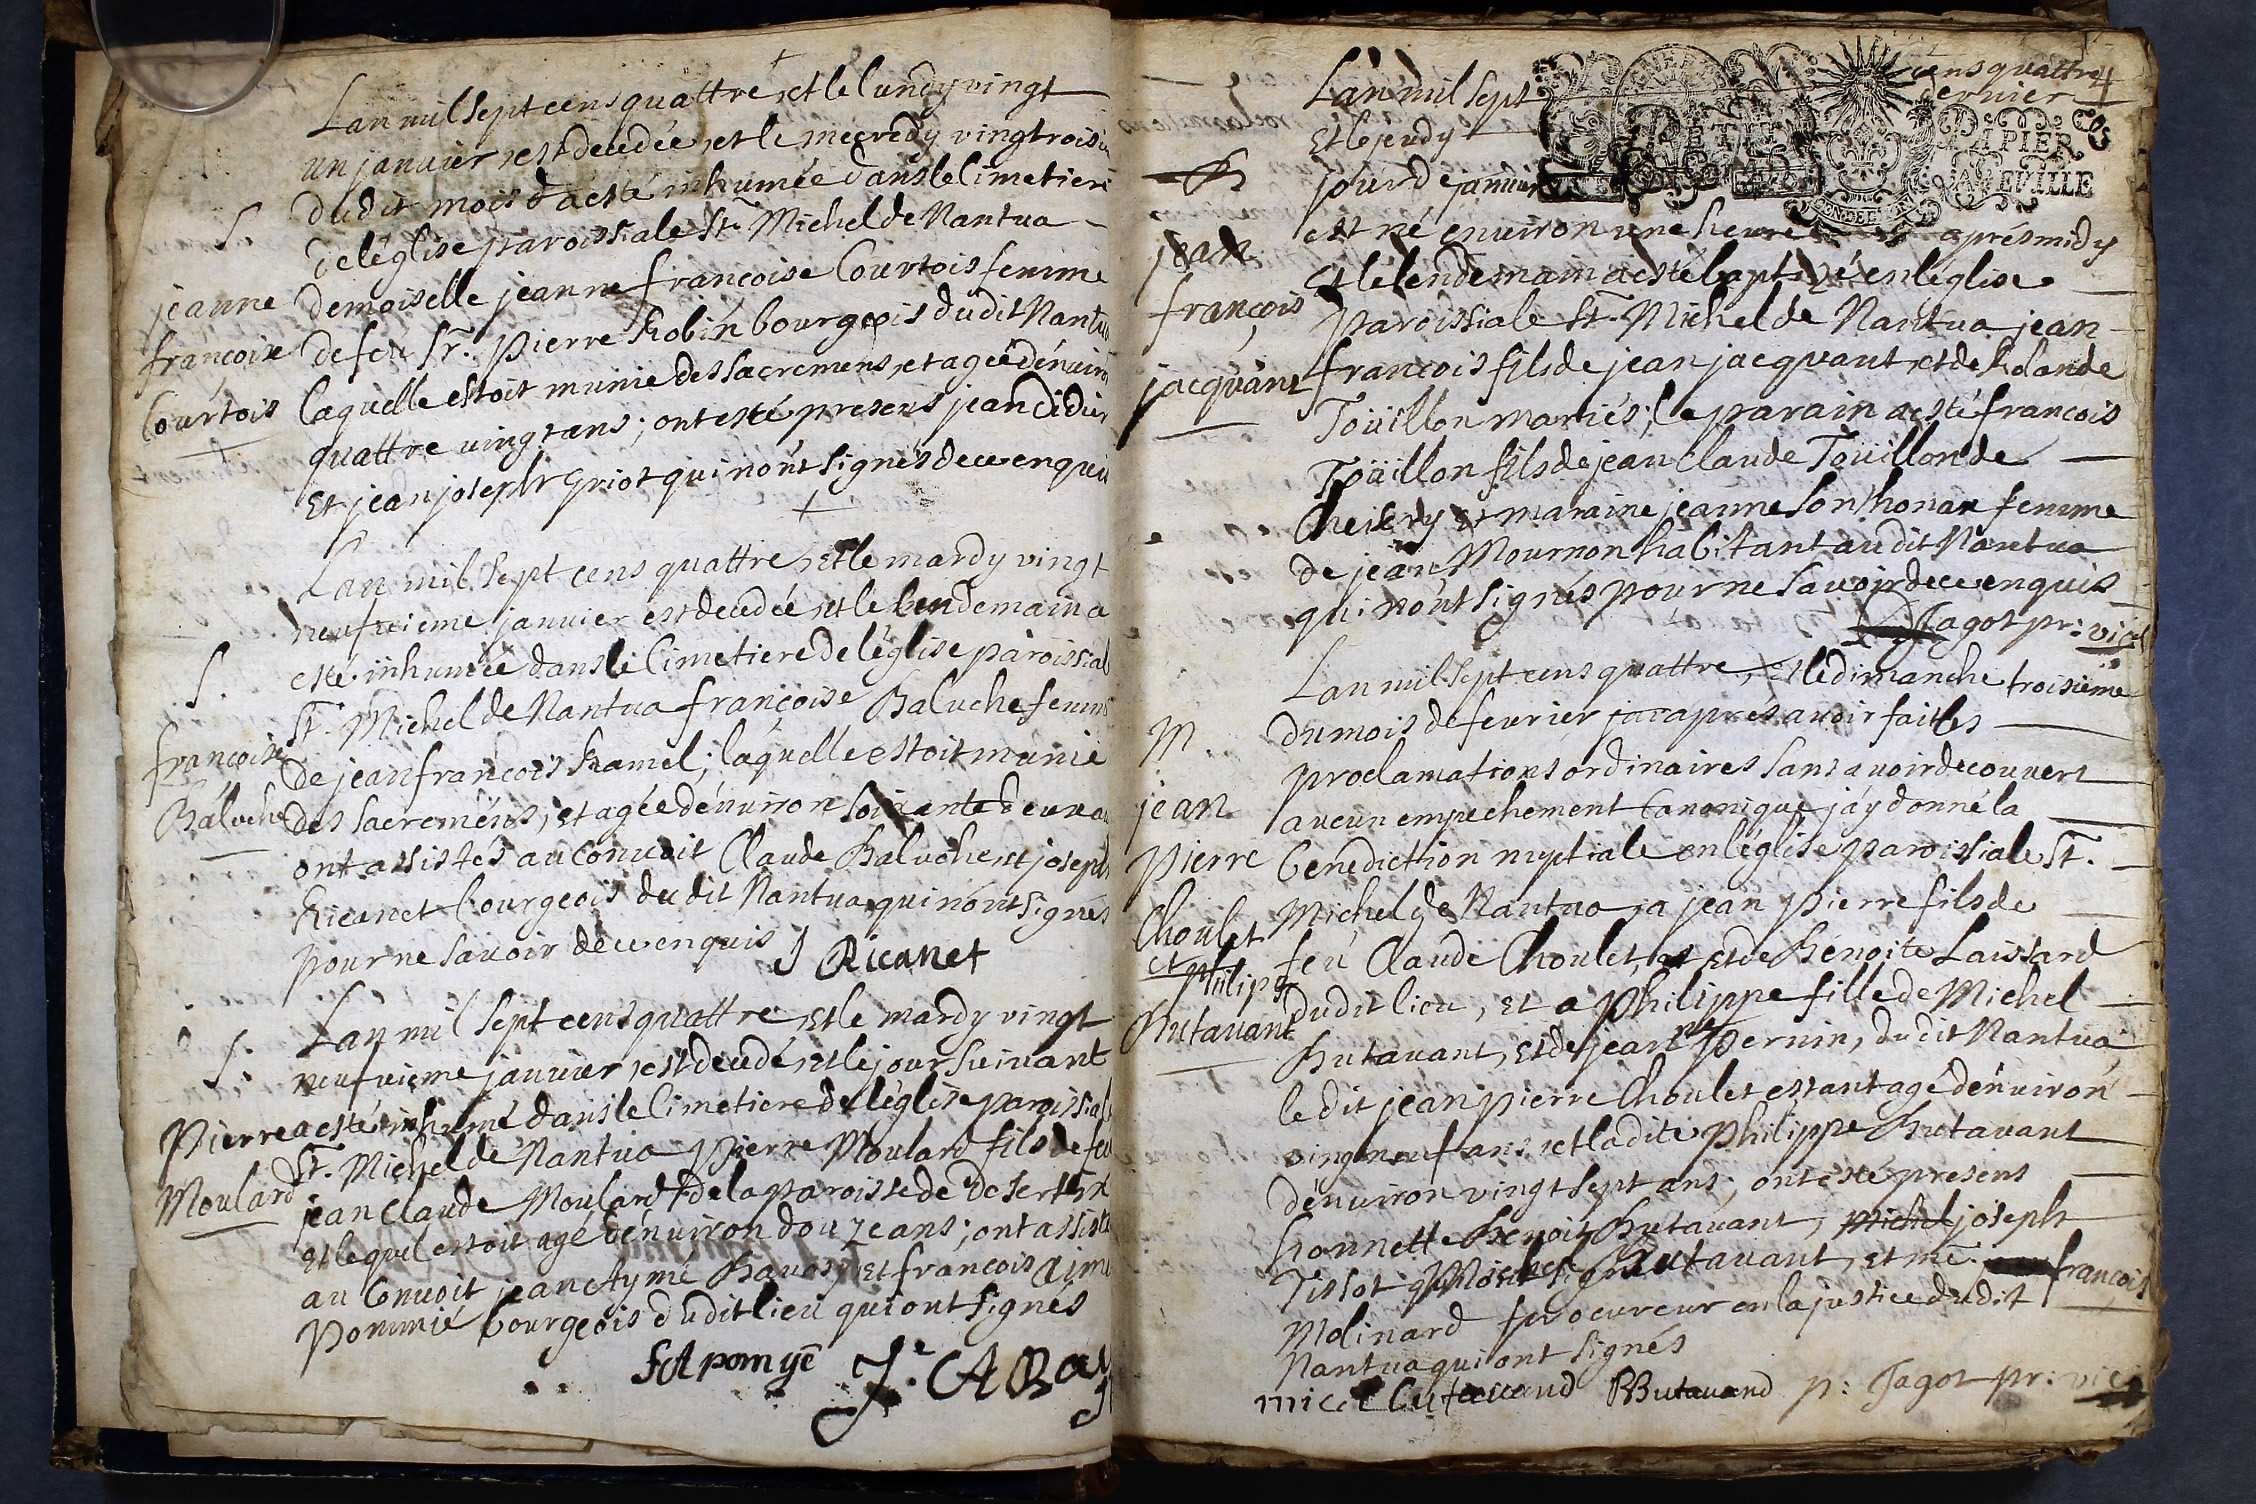 Lan mil sept cens quattre, et le lundy vingt
un janvier, est decedée, et le mecredy vingtroisie
dudit mois d a esté inhumée dans le Cimetiere
S.
de léglise paroissiale St. Michel de Nantua
jeanne françoise Courtois
demoiselle jeanne françoise Courtois femme
de feu Sr. Pierre Robin bourgeois dudit Nantua
laquelle estoit munie des sacremens, et agée dénviron
quattre vingt ans; ont esté presens jean didier
Et jean joseph Griot qui nónt signés de ce enquis
Lan mil sept cens quattre, et le mardy vingt
neufvieme janvier est decedée, et le lendemain a
S.
esté inhumée dans le Cimetiere de léglise paroissial
françoise Baluche
St. Michel de Nantua françoise Baluche femme
de jean françois Ramel; laquelle estoit munie
des sacreméns, et agée dénviron soixante deux a
ont assistés au Convoit Claude Baluche et joseph
Ricanet bourgeois du dit Nantua qui nónt signés
pour ne savoir de ce enquis J Ricanet
Lan mil sept cens quattre, et le mardy vingt
S.
neufvieme janvier, est decedé, et le jour suivant
Pierre Moulard
a esté inhumé dans le Cimetiere de léglise paroissial
St. Michel de Nantua Pierre Moulard fils de feu
jean Claude Moulard de la paroisse de
et lequel estoit agé dénviron douze ans; ont assistés
au Convoit jean Aymé Bavozy et francois aimé
Pommié bourgeois dudit lieu qui ont signés
fA pomyé J. A Ba
Lan mil sept cens quattre
Et le jeudy dernier
jour de janvier
PETIT PAPIER
est né environ une heure après midy
Et le lendemain a esté baptizé en léglise
jean françois jacquant
Paroissiale St. Michel de Nantua jean
francois fils de jean jacquant, et de Rolande
Toüillon mariés; le parain a esté francois
Toüillon fils de jean Claude Toüillon de
et maraine jeanne Sonthonax femme
de jean Mournon habitant audit Nantua
qui nónt signés pour ne savoir de ce enquis
Jagot pr: vic
Lan mil sept cens quattre, et le dimanche troisieme
M.
du mois de fevrier apres avoir fait les
proclamations ordinaires sans avoir decouvert
jean Pierre Choulet et philippe Butavant
aucun empechement Canonique jáy donné la
benediction nuptiale en léglise paroissiale St.
Michel de Nantua, a jean Pierre fils de
feu Claude Choulet, et de Bénoite Laissard
dudit lieu, et a Philippe fille de Michel
Butavant, et de jeanne Pernin, dudit Nantua
le dit jean pierre Choulet estant agé dénviron
vingt neuf ans, et ladite Philippe Butavant
dénviron vingt sept ans; ont esté presens
honnette Benoit Butavant, michel joseph
Tissot Michel Butavant, et me. francois
Molinard procureur en la justice dudit
Nantua qui ont signés
BButavand p: Jagot pr: vic